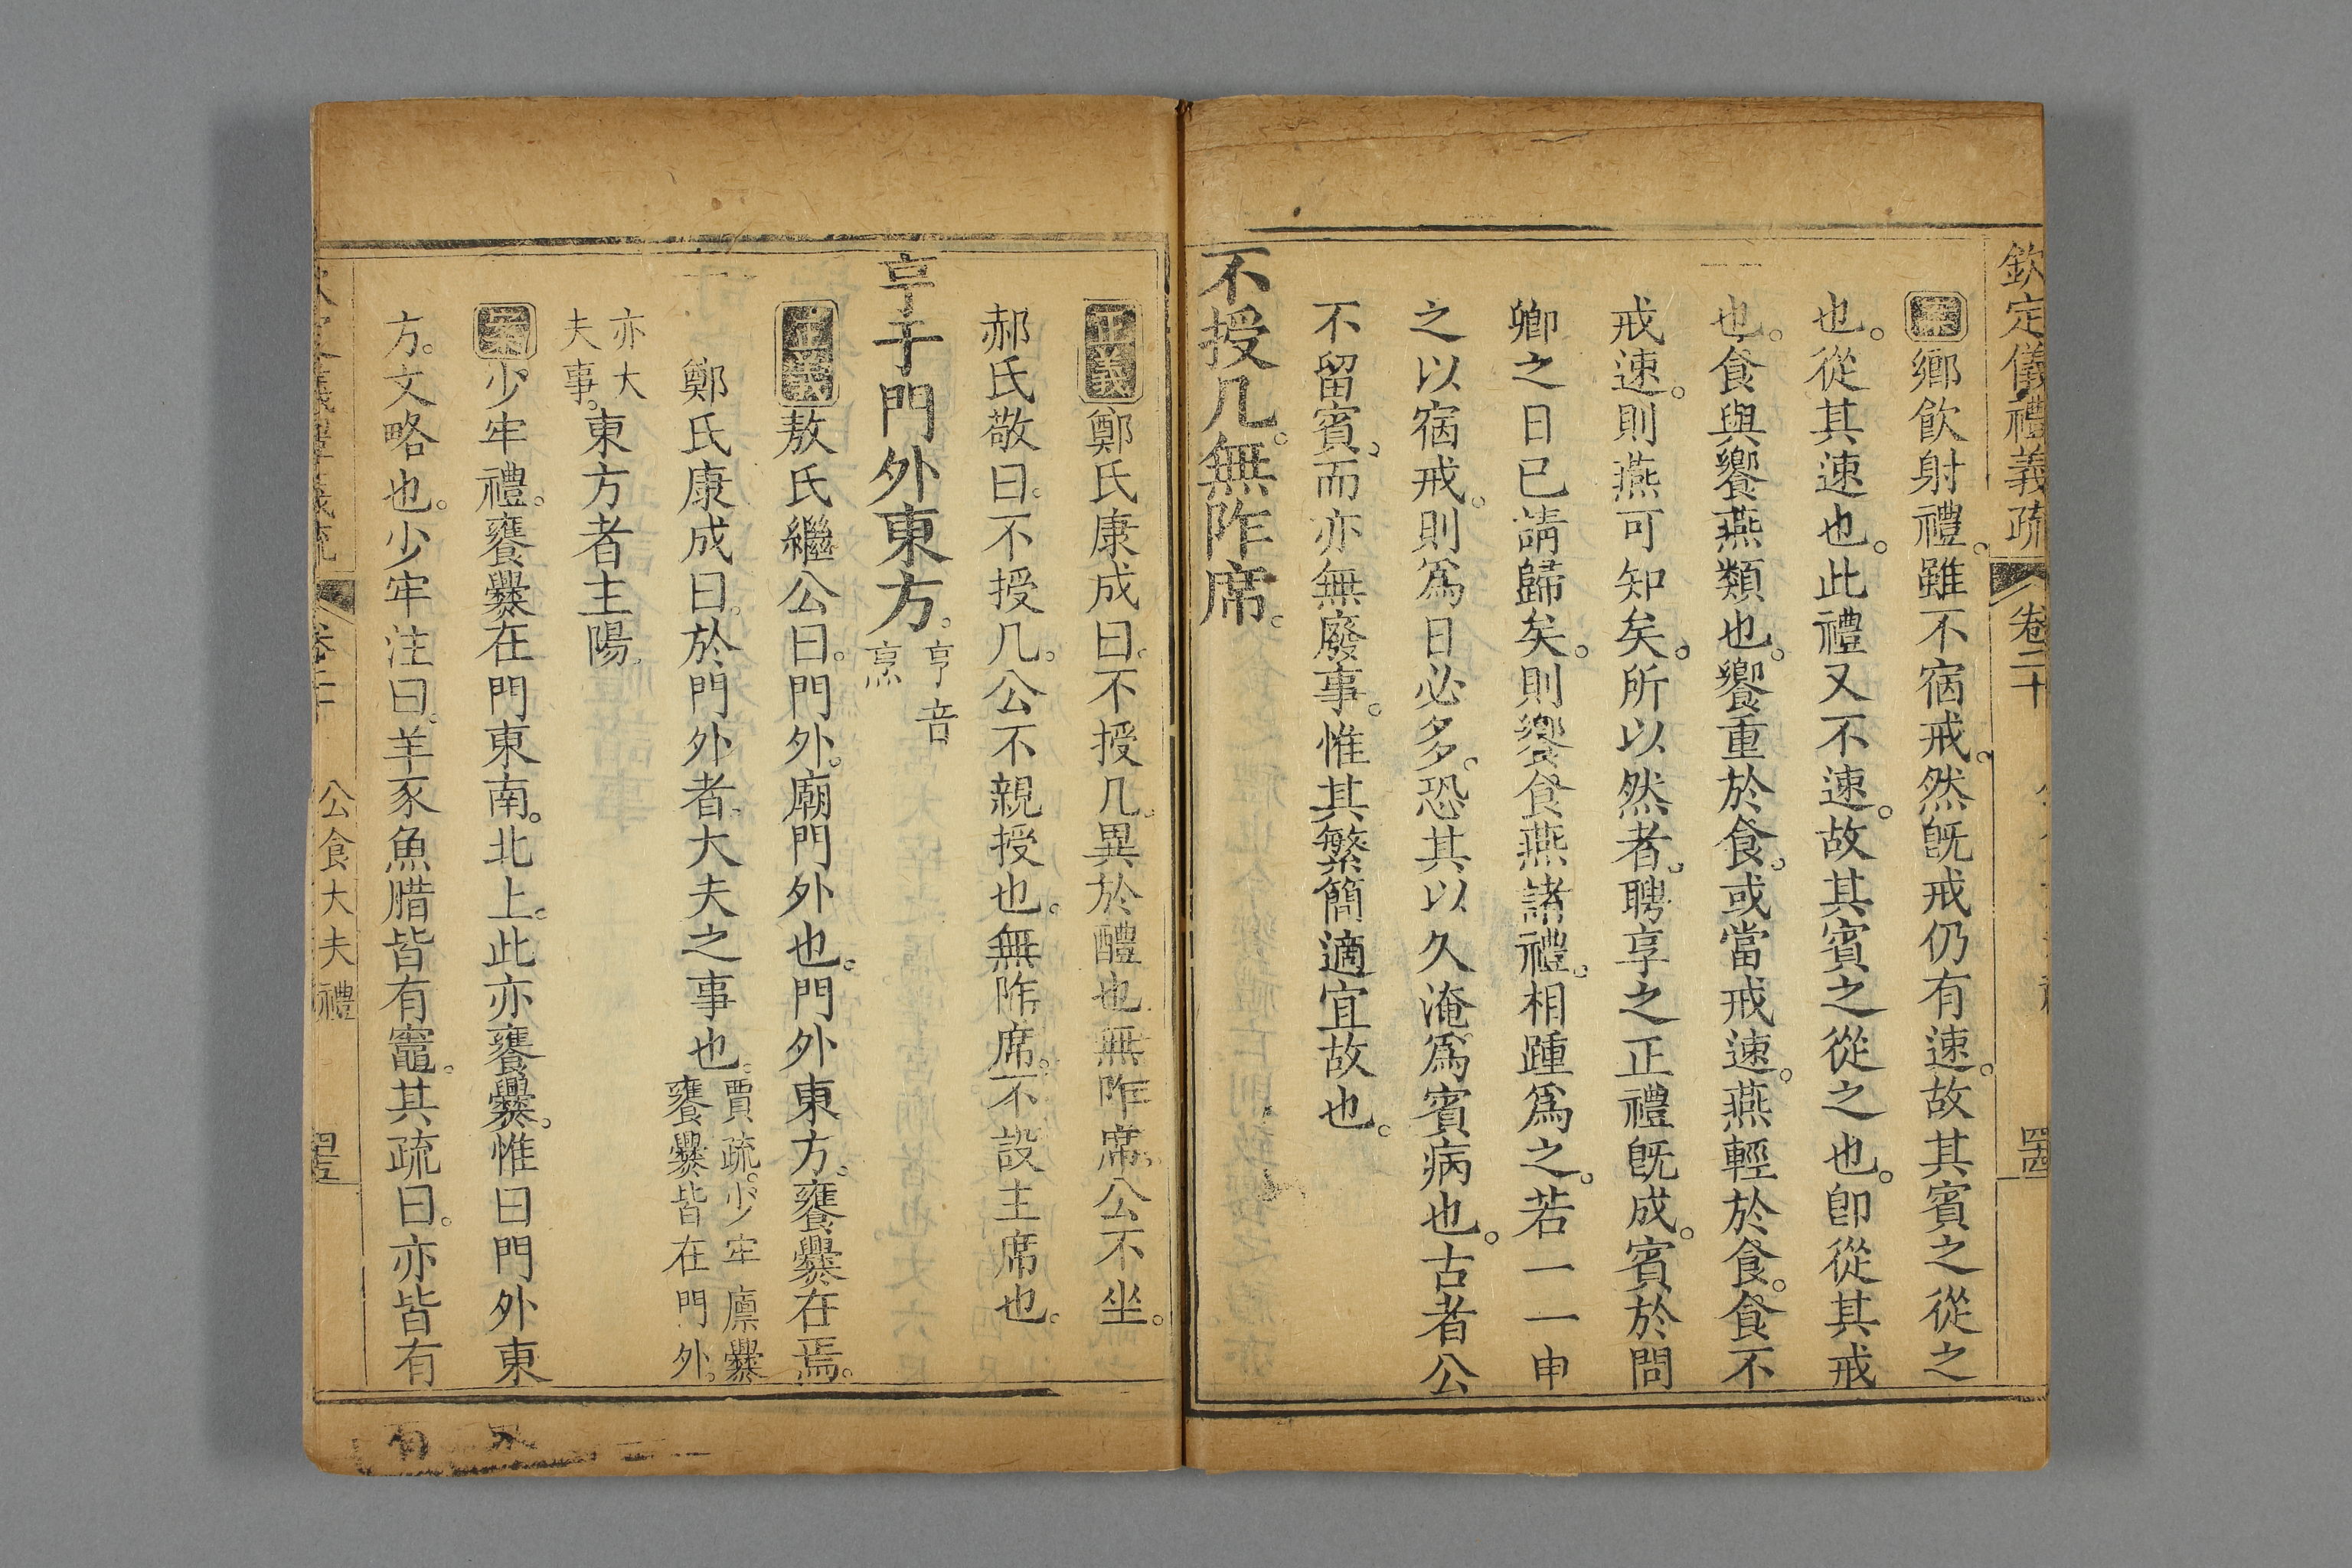 欽定儀禮義疏 卷二十 四十四
案鄉飲射禮。雖不宿戒。然旣戒仍有速。故其賓之從之
也。從其速也。此禮又不速。故其賓之從之也。卽從其戒
也。食與饗燕類也。饗重於食。或當戒速。燕輕於食。食不
戒速。則燕可知矣。所以然者。聘享之正禮旣成。賓於問
卿之日已請歸矣。則饗食燕諸禮。相踵爲之。若一一申
之以宿戒。則爲日必多。恐其以久淹爲賓病也。古者公
不留賓。而亦無廢事。惟其繁簡適宜故也。
不授几。無阼席。
正義鄭氏康成曰。不授几。異於醴也。無阼席。公不坐。
郝氏敬曰。不授几。公不親授也。無阼席。不設主席也。
亨于門外東方。亨音
烹
正義敖氏繼公曰。門外。廟門外也。門外東方。饔爨在焉。
鄭氏康成曰。於門外者。大夫之事也。賈疏。少牢廩爨
饔爨皆在門外。
亦大
夫事。東方者主陽。
案少牢禮。饔爨在門東南。北上。此亦饔爨。惟曰門外東
方。文略也。少牢注曰。羊豕魚腊皆有竈。其疏曰。亦皆有
公食大夫禮